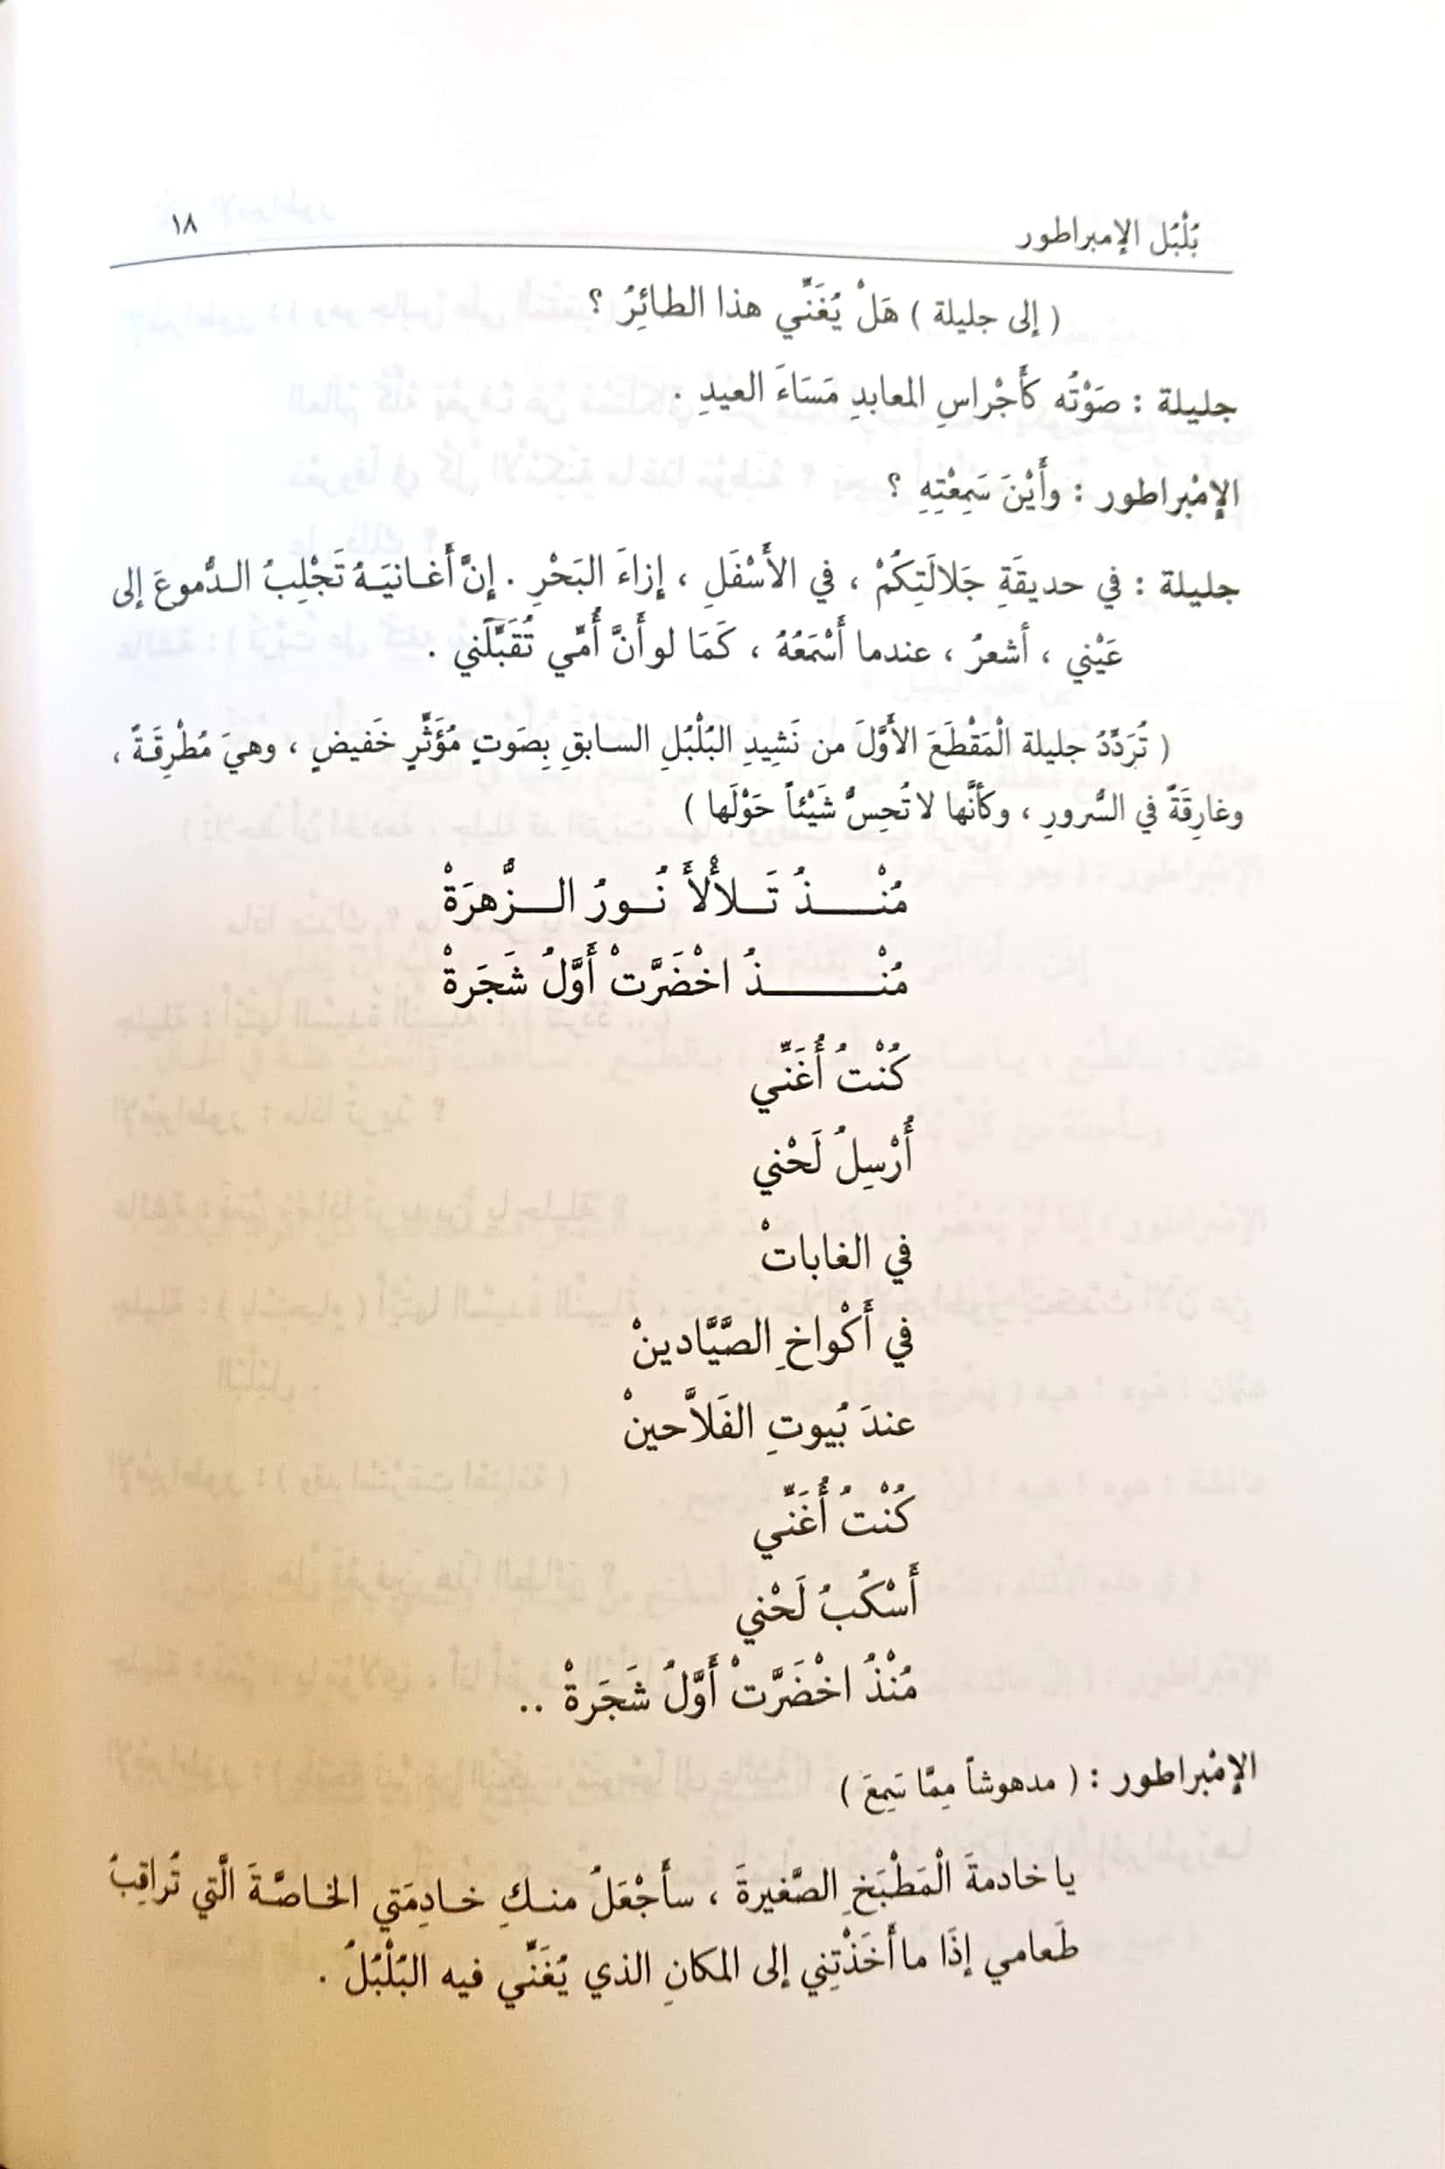 بُلْبُل الإمبراطور ١٨
( إلى جليلة ) هَلْ يُغَنِّي هذا الطائِرُ ؟
جليلة : صَوْتُه كَأَجْراسِ المعابدِ مَسَاءَ العيدِ .
الإمْبراطور : وأَيْنَ سَمِعْتِهِ ؟
جليلة : في حديقَةِ جَلالَتِكُمْ ، في الأَسْفَلِ ، إزاءَ البَحْرِ . إنَّ أَغانيَهُ تَجْلِبُ الدُّموعَ إلى
عَيْني ، أشعرُ ، عندما أَسْمَعُهُ ، كَمَا لو أَنَّ أُمِّي تُقَبِّلَني .
( تُرَدِّدُ جليلة الْمَقْطَعَ الأَوَّلَ من نَشِيدِ البُلْبُلِ السابقِ بِصَوتٍ مُؤَثِّرٍ خَفيضٍ ، وهيَ مُطْرِقَةً ،
وغارِقَةً في السُّرورِ ، وكأنَّها لا تُحِسُّ شَيْئاً حَوْلَها )
مُنْذُ تَلأْلأَ نُورُ الزُّهرَةْ
مُنْذُ اخْضَرَّتْ أَوَّلُ شَجَرَةْ
كُنْتُ أُغَنِّي
أُرْسِلُ لَحْني
في الغاباتْ
في أَكْواخِ الصَّيَّادينْ
عندَ بُيوتِ الفَلاَّحينْ
كُنْتُ أُغَنِّي
أَسْكُبُ لَحْني
مُنْذُ اخْضَرَّتْ أَوَّلُ شَجَرَةْ ..
الإمْبراطور : ( مدهوشاً مِمَّا سَمِعَ )
يا خادمةَ الْمَطْبَخِ الصَّغيرةَ ، سأَجْعَلُ منكِ خادِمَتي الخاصَّةَ الَّتي تُراقِبُ
طَعامي إذَا ما أَخَذْتِني إلى المكانِ الذي يُغَنِّي فيه البُلْبُلُ .